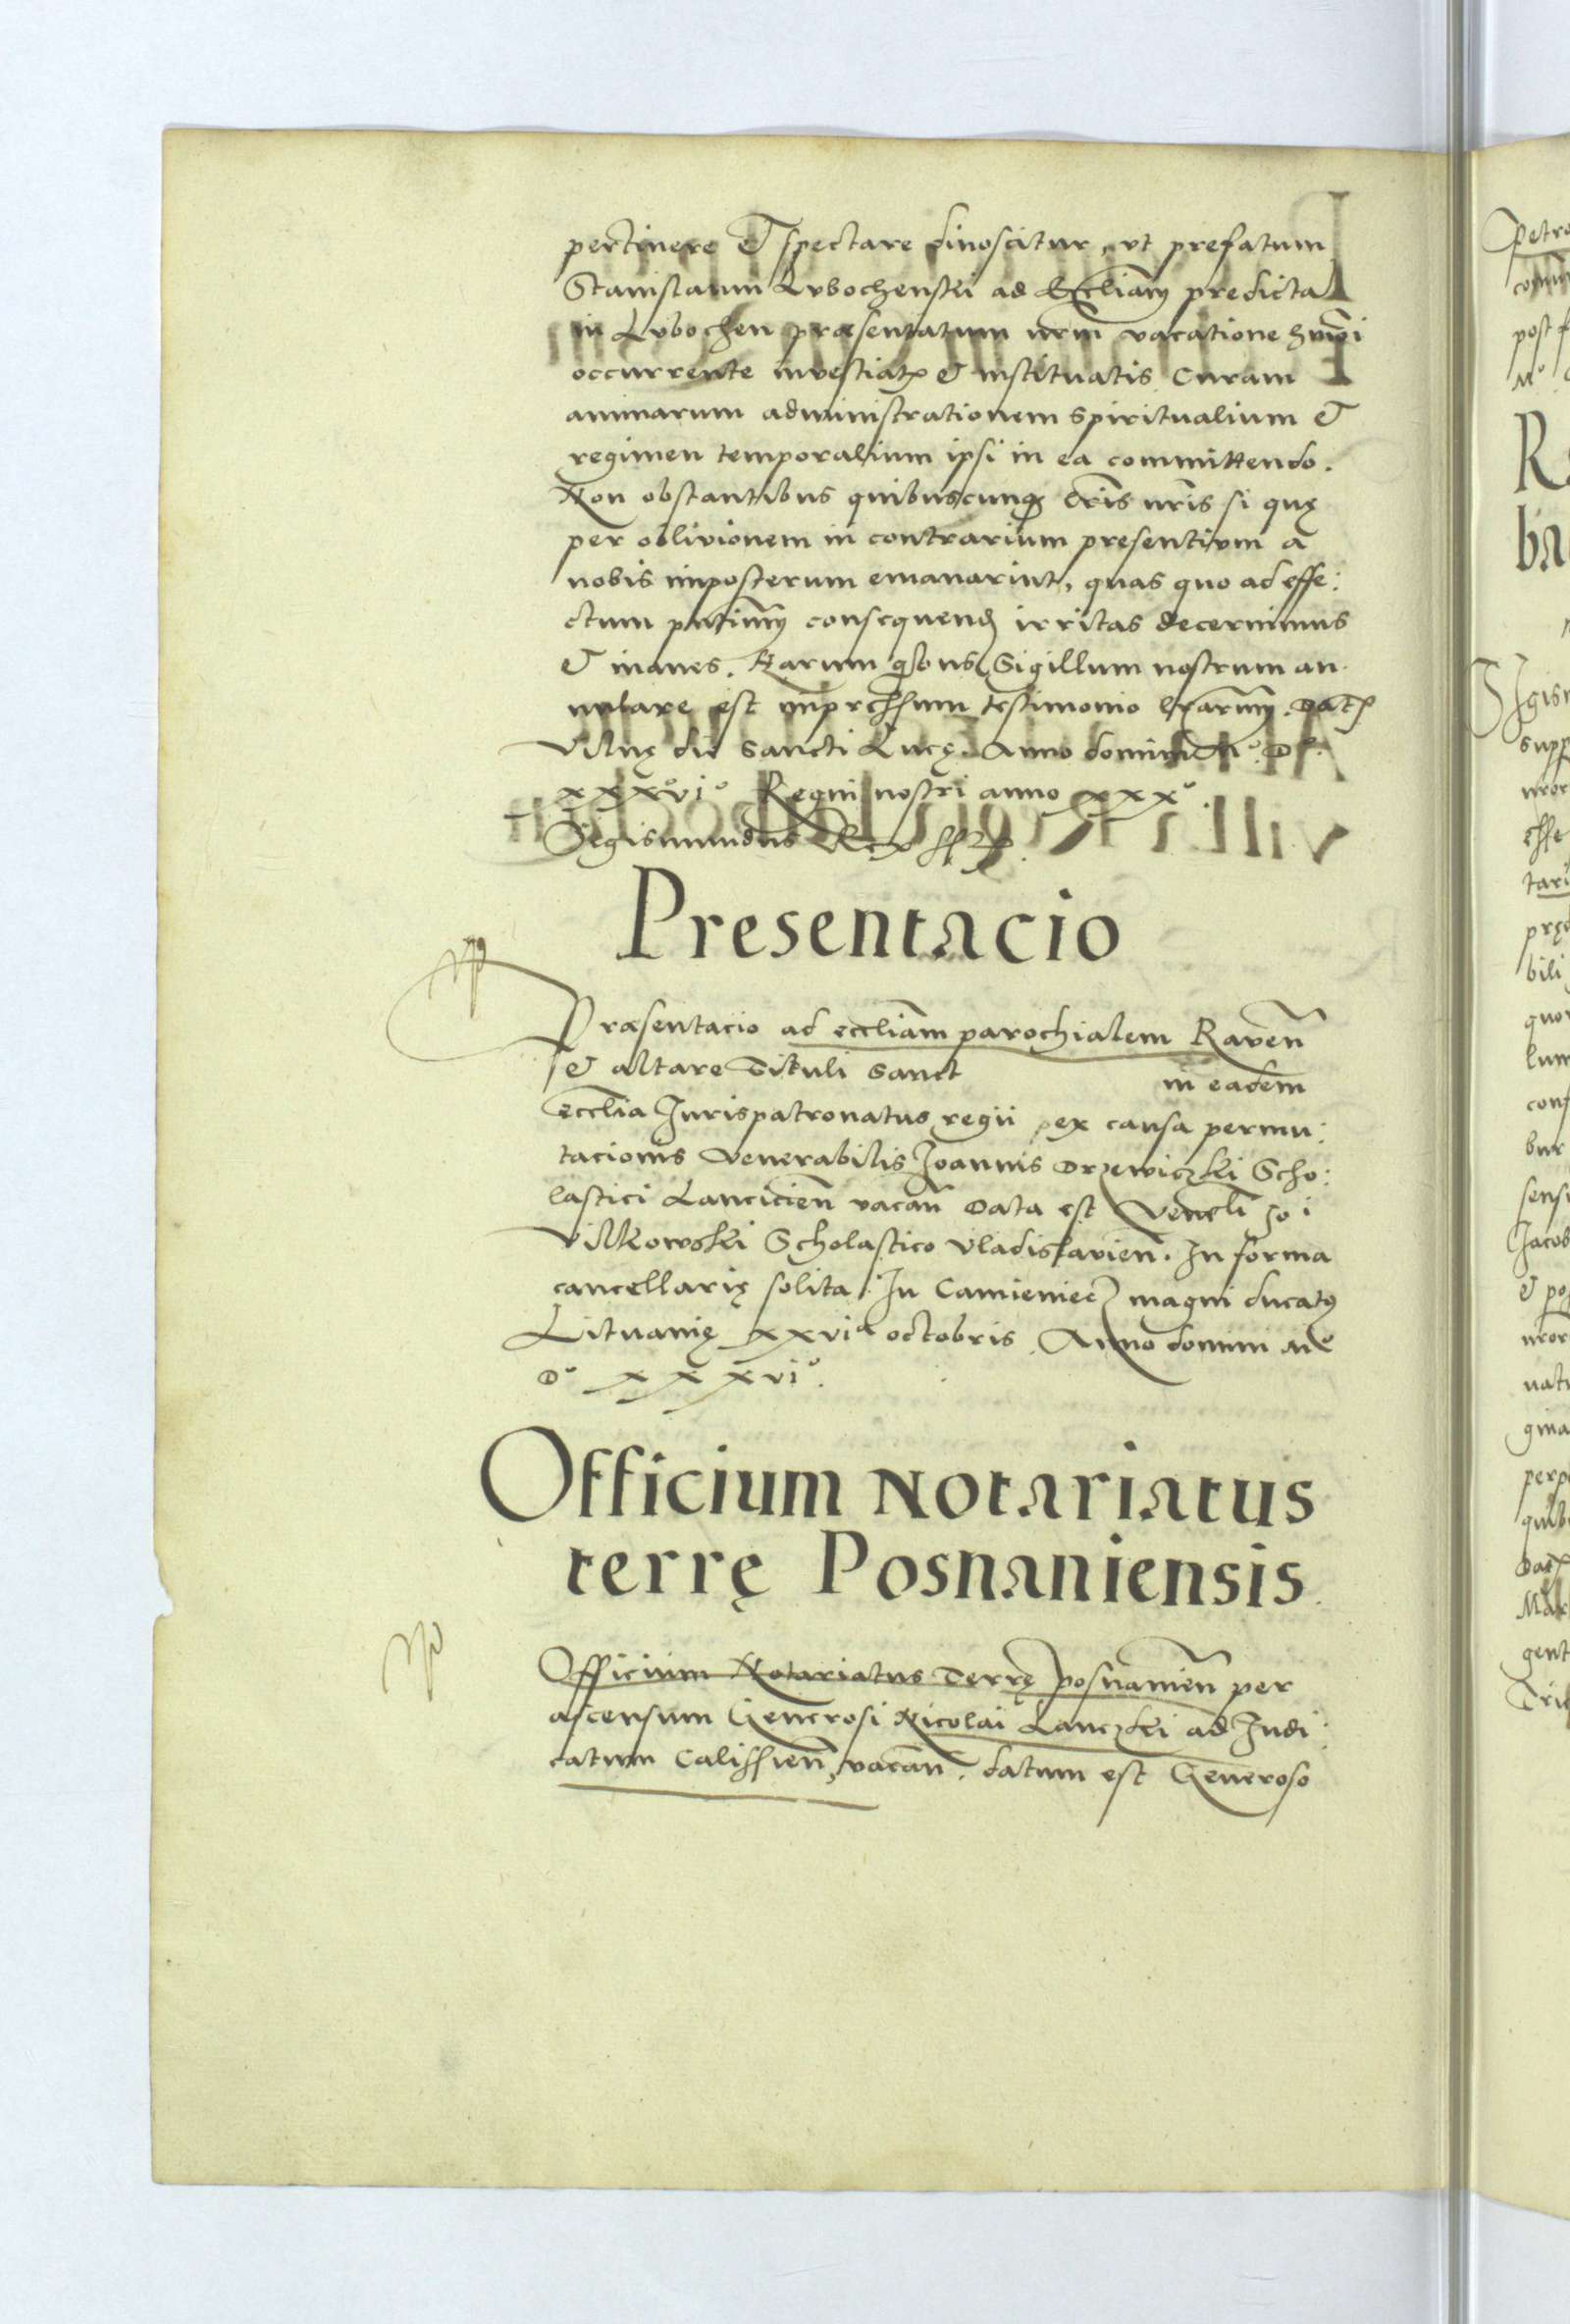 pertinere et spectare dinoscitur, vt prefatum
Stanislaum Lvbochenski ad Eccliam predicta
in Lvbochen præsentatum nrm vacatione hmoi
occurrente investiatis et instituatis Curam
animarum administrationem spiritualium et
regimen temporalium ipsi in ea committendo.
Non obstantibus quibuscunq lris nris si quę
per oblivionem in contrarium presentivm a
nobis imposterum emanarint, quas quo ad effe:
ctum pntium consequend irritas decernimus
et inanes. Harum qbus Sigillum nostrum an
nulare est impressum testimonio lrarum. Dat
Vilnę die sancti Lucę. Anno domini Mº. Dº.
xxxviº Regni nostri anno xxxº.
Segismundus Rex sst
Presentacio
Præsentacio ad eccliam parochialem Raven
et altare Tituli sanct in eadem
ecclia Jurispatronatus regii ex causa permu:
tacionis venerabilis Joannis Drzewiczki Scho:
lastici Lancicien vacan Data est Venrli Joi
Vilkowski Scholastico Vladislavien. In forma
cancellarię solita. In Camieniecz magni ducatus
Lituanię xxvia octobris. Anno domini Mº
Dº xxxviº.
Officium Notariatus
terrę Posnaniensis
Officium Notariatus Terrę posnanien per
ascensum Generosi Nicolai Lanczki ad Judi:
catum Calissien, vacan. datum est Generoso